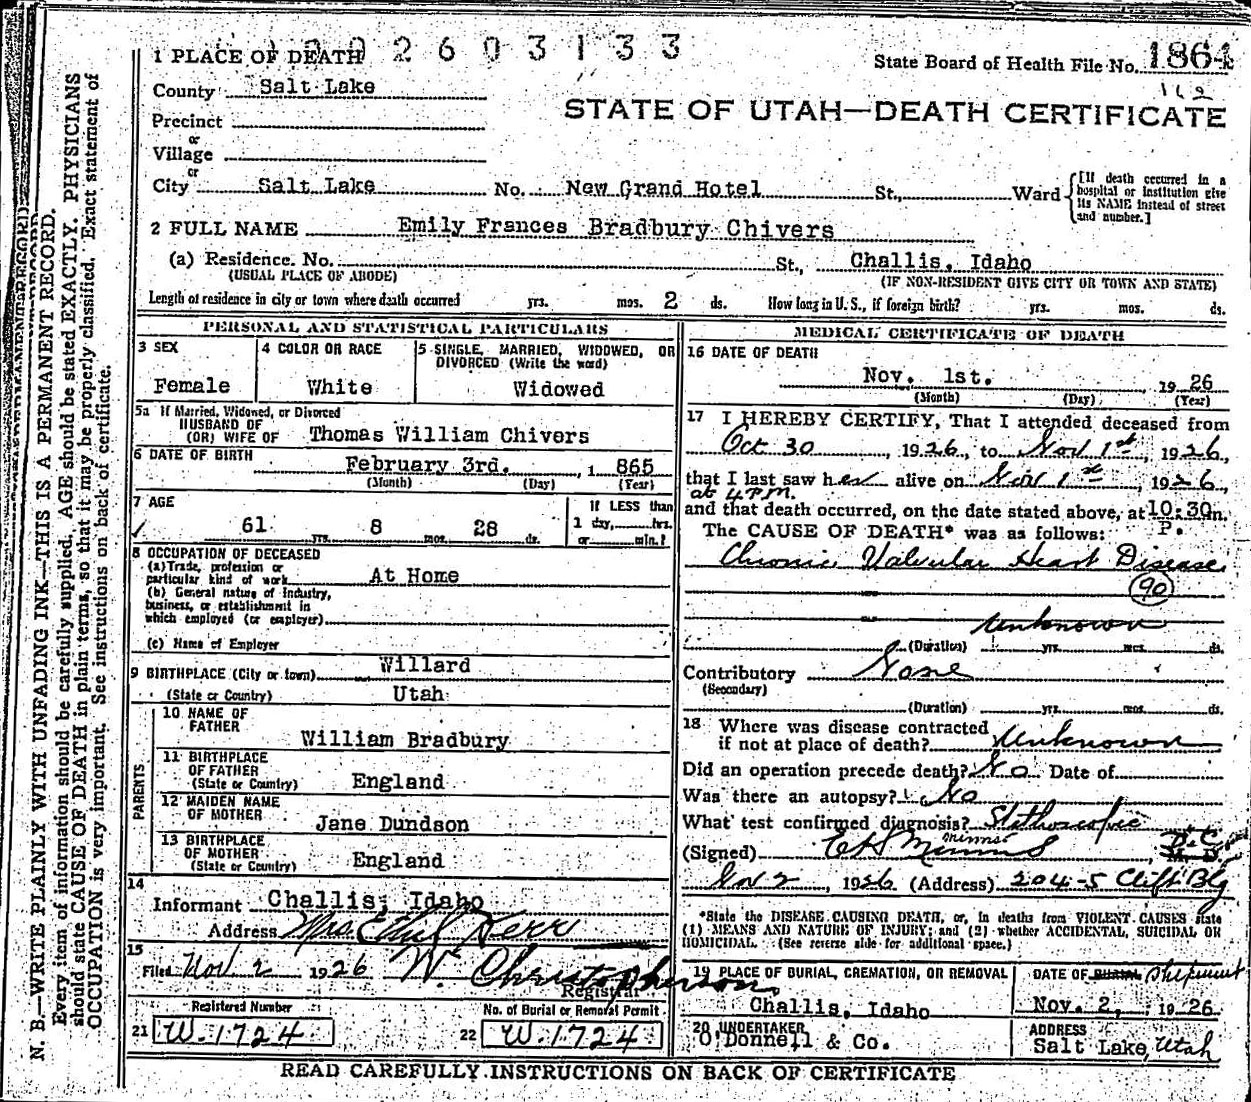 2603133
1 PLACE OF DEATH
State Board of Health File No. 1864
162
County Salt Lake
STATE OF UTAH—DEATH CERTIFICATE
Precinct
or
Village
or
City Salt Lake No. New Grand Hotel St., Ward
[If death occurred in a hospital or institution give its NAME instead of street and number.]
2 FULL NAME Emily Frances Bradbury Chivers
(a) Residence. No. St., Challis, Idaho
(USUAL PLACE OF ABODE) (IF NON-RESIDENT GIVE CITY OR TOWN AND STATE)
Length of residence in city or town where death occurred yrs. mos. 2 ds. How long in U.S., if foreign birth? yrs. mos. ds.
PERSONAL AND STATISTICAL PARTICULARS
3 SEX
Female
4 COLOR OR RACE
White
5 SINGLE, MARRIED, WIDOWED, OR
DIVORCED (Write the word)
Widowed
5a If Married, Widowed, or Divorced
HUSBAND OF
(OR) WIFE OF Thomas William Chivers
6 DATE OF BIRTH February 3rd. 1 865
(Month) (Day) (Year)
7 AGE
61 yrs. 8 mos. 28 ds.
If LESS than
1 day, hrs.
or min.?
8 OCCUPATION OF DECEASED
(a) Trade, profession or
particular kind of work At Home
(b) General nature of Industry,
business, or establishment in
which employed (or employer)
(c) Name of Employer
9 BIRTHPLACE (City or town) Willard
(State or Country) Utah
PARENTS
10 NAME OF
FATHER William Bradbury
11 BIRTHPLACE
OF FATHER
(State or Country) England
12 MAIDEN NAME
OF MOTHER Jane Dundson
13 BIRTHPLACE
OF MOTHER
(State or Country) England
14
Informant Challis, Idaho
Address Mrs. Ethel Kerr
15
Filed Nov 2 1926 W. Christopherson
Registrar
Registered Number
21 W.1724
No. of Burial or Removal Permit
22 W.1724
MEDICAL CERTIFICATE OF DEATH
16 DATE OF DEATH
Nov. 1st. 1926
(Month) (Day) (Year)
17 I HEREBY CERTIFY, That I attended deceased from
Oct 30, 1926, to Nov 1st, 1926,
that I last saw her alive on Nov 1st, 1926,
at 4 P.M.
and that death occurred, on the date stated above, at 10:30m.
P.
The CAUSE OF DEATH* was as follows:
Chronic Valvular Heart Disease
90
Unknown
(Duration) yrs. mos. ds.
Contributory None
(Secondary)
(Duration) yrs. mos. ds.
18 Where was disease contracted
if not at place of death? Unknown
Did an operation precede death? No Date of
Was there an autopsy? No
What test confirmed diagnosis? Stethoscopic
(Signed) E H S Minns Minns D.C. M. D.
Nov 2, 1926 (Address) 204-5 Clift Blg
*State the DISEASE CAUSING DEATH, or, in deaths from VIOLENT CAUSES state
(1) MEANS AND NATURE OF INJURY; and (2) whether ACCIDENTAL, SUICIDAL OR
HOMICIDAL. (See reverse side for additional space.)
19 PLACE OF BURIAL, CREMATION, OR REMOVAL
Challis, Idaho
DATE OF BURIAL Shipment
Nov. 2, 1926
20 UNDERTAKER
O'Donnell & Co.
ADDRESS
Salt Lake, Utah
READ CAREFULLY INSTRUCTIONS ON BACK OF CERTIFICATE
N. B.—WRITE PLAINLY WITH UNFADING INK—THIS IS A PERMANENT RECORD.
Every item of information should be carefully supplied. AGE should be stated EXACTLY. PHYSICIANS
should state CAUSE OF DEATH in plain terms, so that it may be properly classified. Exact statement of
OCCUPATION is very important. See instructions on back of certificate.